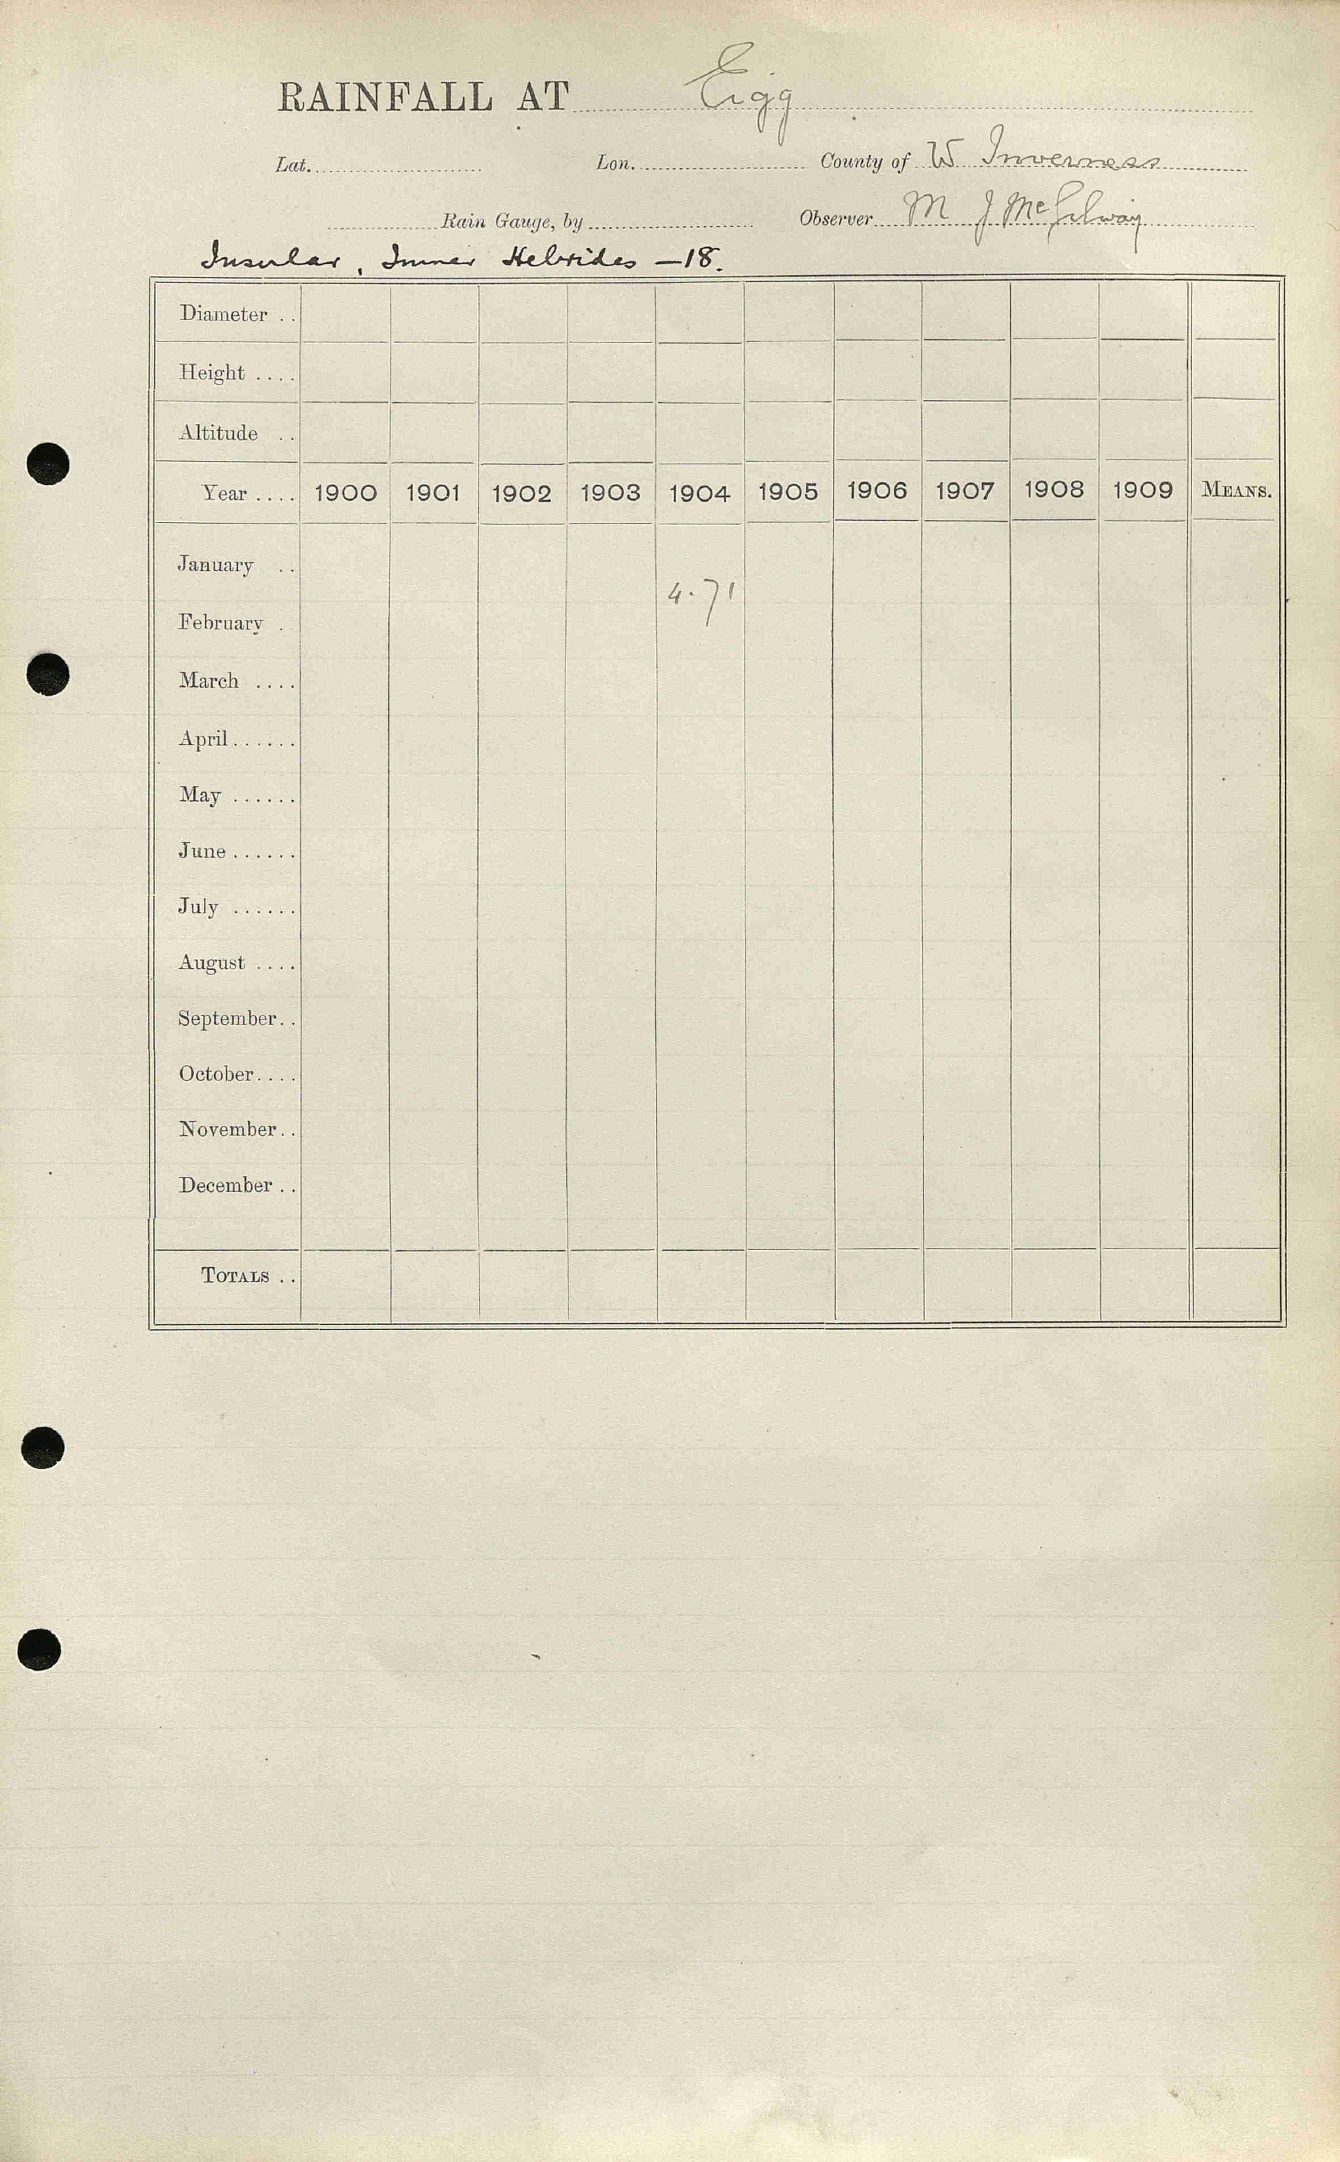 RAINFALL AT Eigg
Lat. Lon. County of W Inverness
Rain Gauge, by Observer M J
Insular, Inner Hebrides —18.
Diameter . .
Height . . . .
Altitude . .
Year . . . . 1900 1901 1902 1903 1904 1905 1906 1907 1908 1909 MEANS.
January . .
4.71
February .
March . . . .
April . . . . . .
May . . . . . .
June . . . . . .
July . . . . . .
August . . . .
September. .
October. . . .
November. .
December . .
TOTALS . .